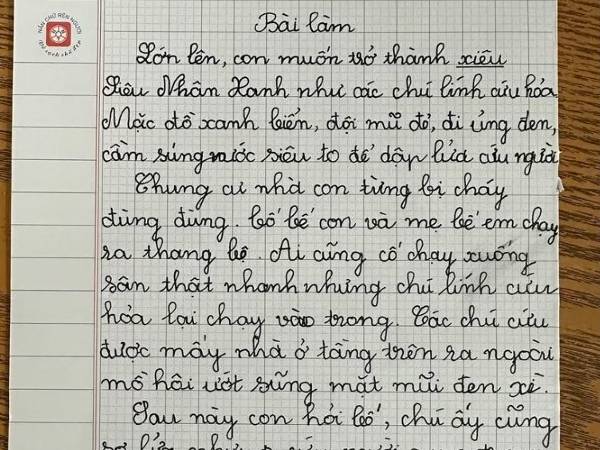 NẮN CHỮ RÈN NGƯỜI
Bài làm
Lớn lên, con muốn trở thành xiêu
Siêu Nhân Xanh như các chú lính cứu hỏa
Mặc đồ xanh biển, đội mũ đỏ, đi ủng đen,
cầm súng nước siêu to để dập lửa cứu người
Chung cư nhà con từng bị cháy
đùng đùng. bố bế con và mẹ bế em chạy
ra thang bộ. Ai cũng cố chạy xuống
sân thật nhanh nhưng chú lính cứu
hỏa lại chạy vào trong. Các chú cứu
được mấy nhà ở tầng trên ra ngoài
mồ hôi ướt sũng mặt mũi đen xì.
Sau này con hỏi bố, chú ấy cũng